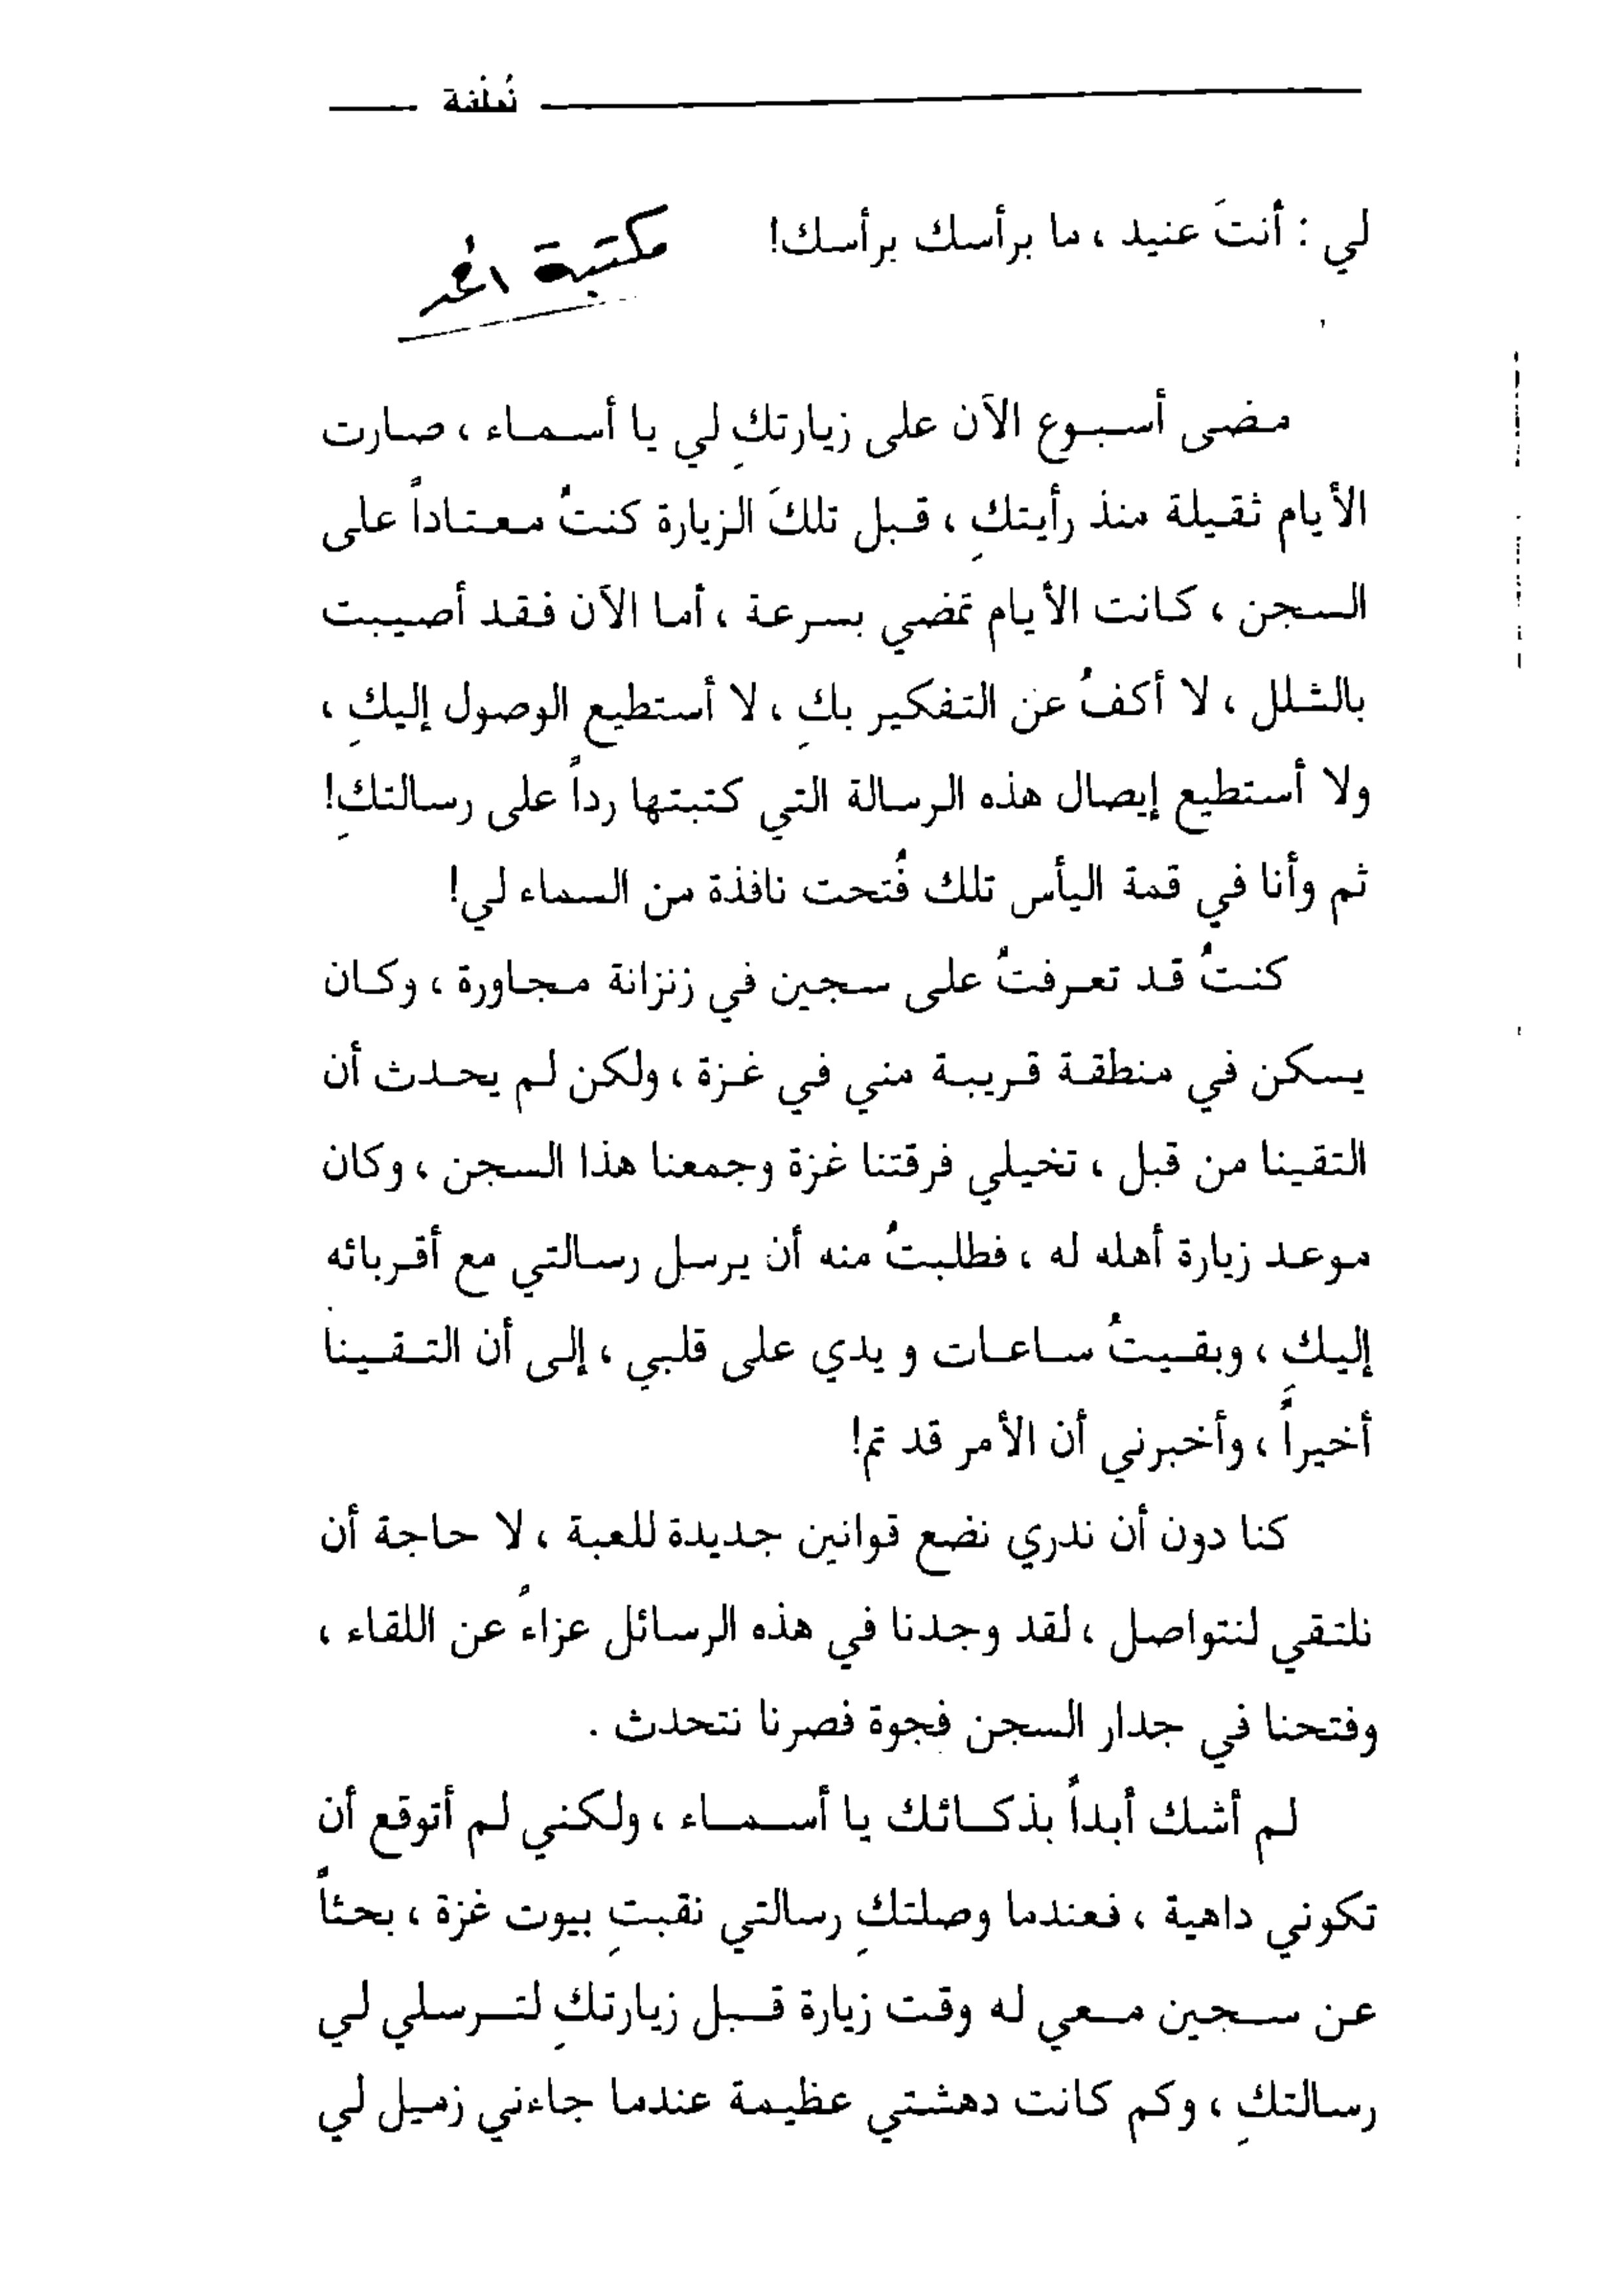 نُطفة
لي : أنتَ عنيد ، ما برأسك برأسك!
مكتبة
مضى أسبوع الآن على زيارتكِ لي يا أسماء ، صارت
الأيام ثقيلة منذ رأيتكِ ، قبل تلكَ الزيارة كنتُ معتاداً على
السجن ، كانت الأيام تمضي بسرعة ، أما الآن فقد أصيبت
بالشلل ، لا أكفُ عن التفكير بكِ ، لا أستطيع الوصول إليكِ ،
ولا أستطيع إيصال هذه الرسالة التي كتبتها رداً على رسالتكِ!
ثم وأنا في قمة اليأس تلك فُتحت نافذة من السماء لي!
كنتُ قد تعرفتُ على سجين في زنزانة مجاورة ، وكان
يسكن في منطقة قريبة مني في غزة ، ولكن لم يحدث أن
التقينا من قبل ، تخيلي فرقتنا غزة وجمعنا هذا السجن ، وكان
موعد زيارة أهله له ، فطلبتُ منه أن يرسل رسالتي مع أقربائه
إليكِ ، وبقيتُ ساعات و يدي على قلبي ، إلى أن التقينا
أخيراً ، وأخبرني أن الأمر قد تم!
كنا دون أن ندري نضع قوانين جديدة للعبة ، لا حاجة أن
نلتقي لنتواصل ، لقد وجدنا في هذه الرسائل عزاءً عن اللقاء ،
وفتحنا في جدار السجن فجوة فصرنا نتحدث .
لم أشك أبداً بذكائك يا أسماء ، ولكني لم أتوقع أن
تكوني داهية ، فعندما وصلتكِ رسالتي نقبتِ بيوت غزة ، بحثاً
عن سجين معي له وقت زيارة قبل زيارتكِ لترسلي لي
رسالتكِ ، وكم كانت دهشتي عظيمة عندما جاءني زميل لي